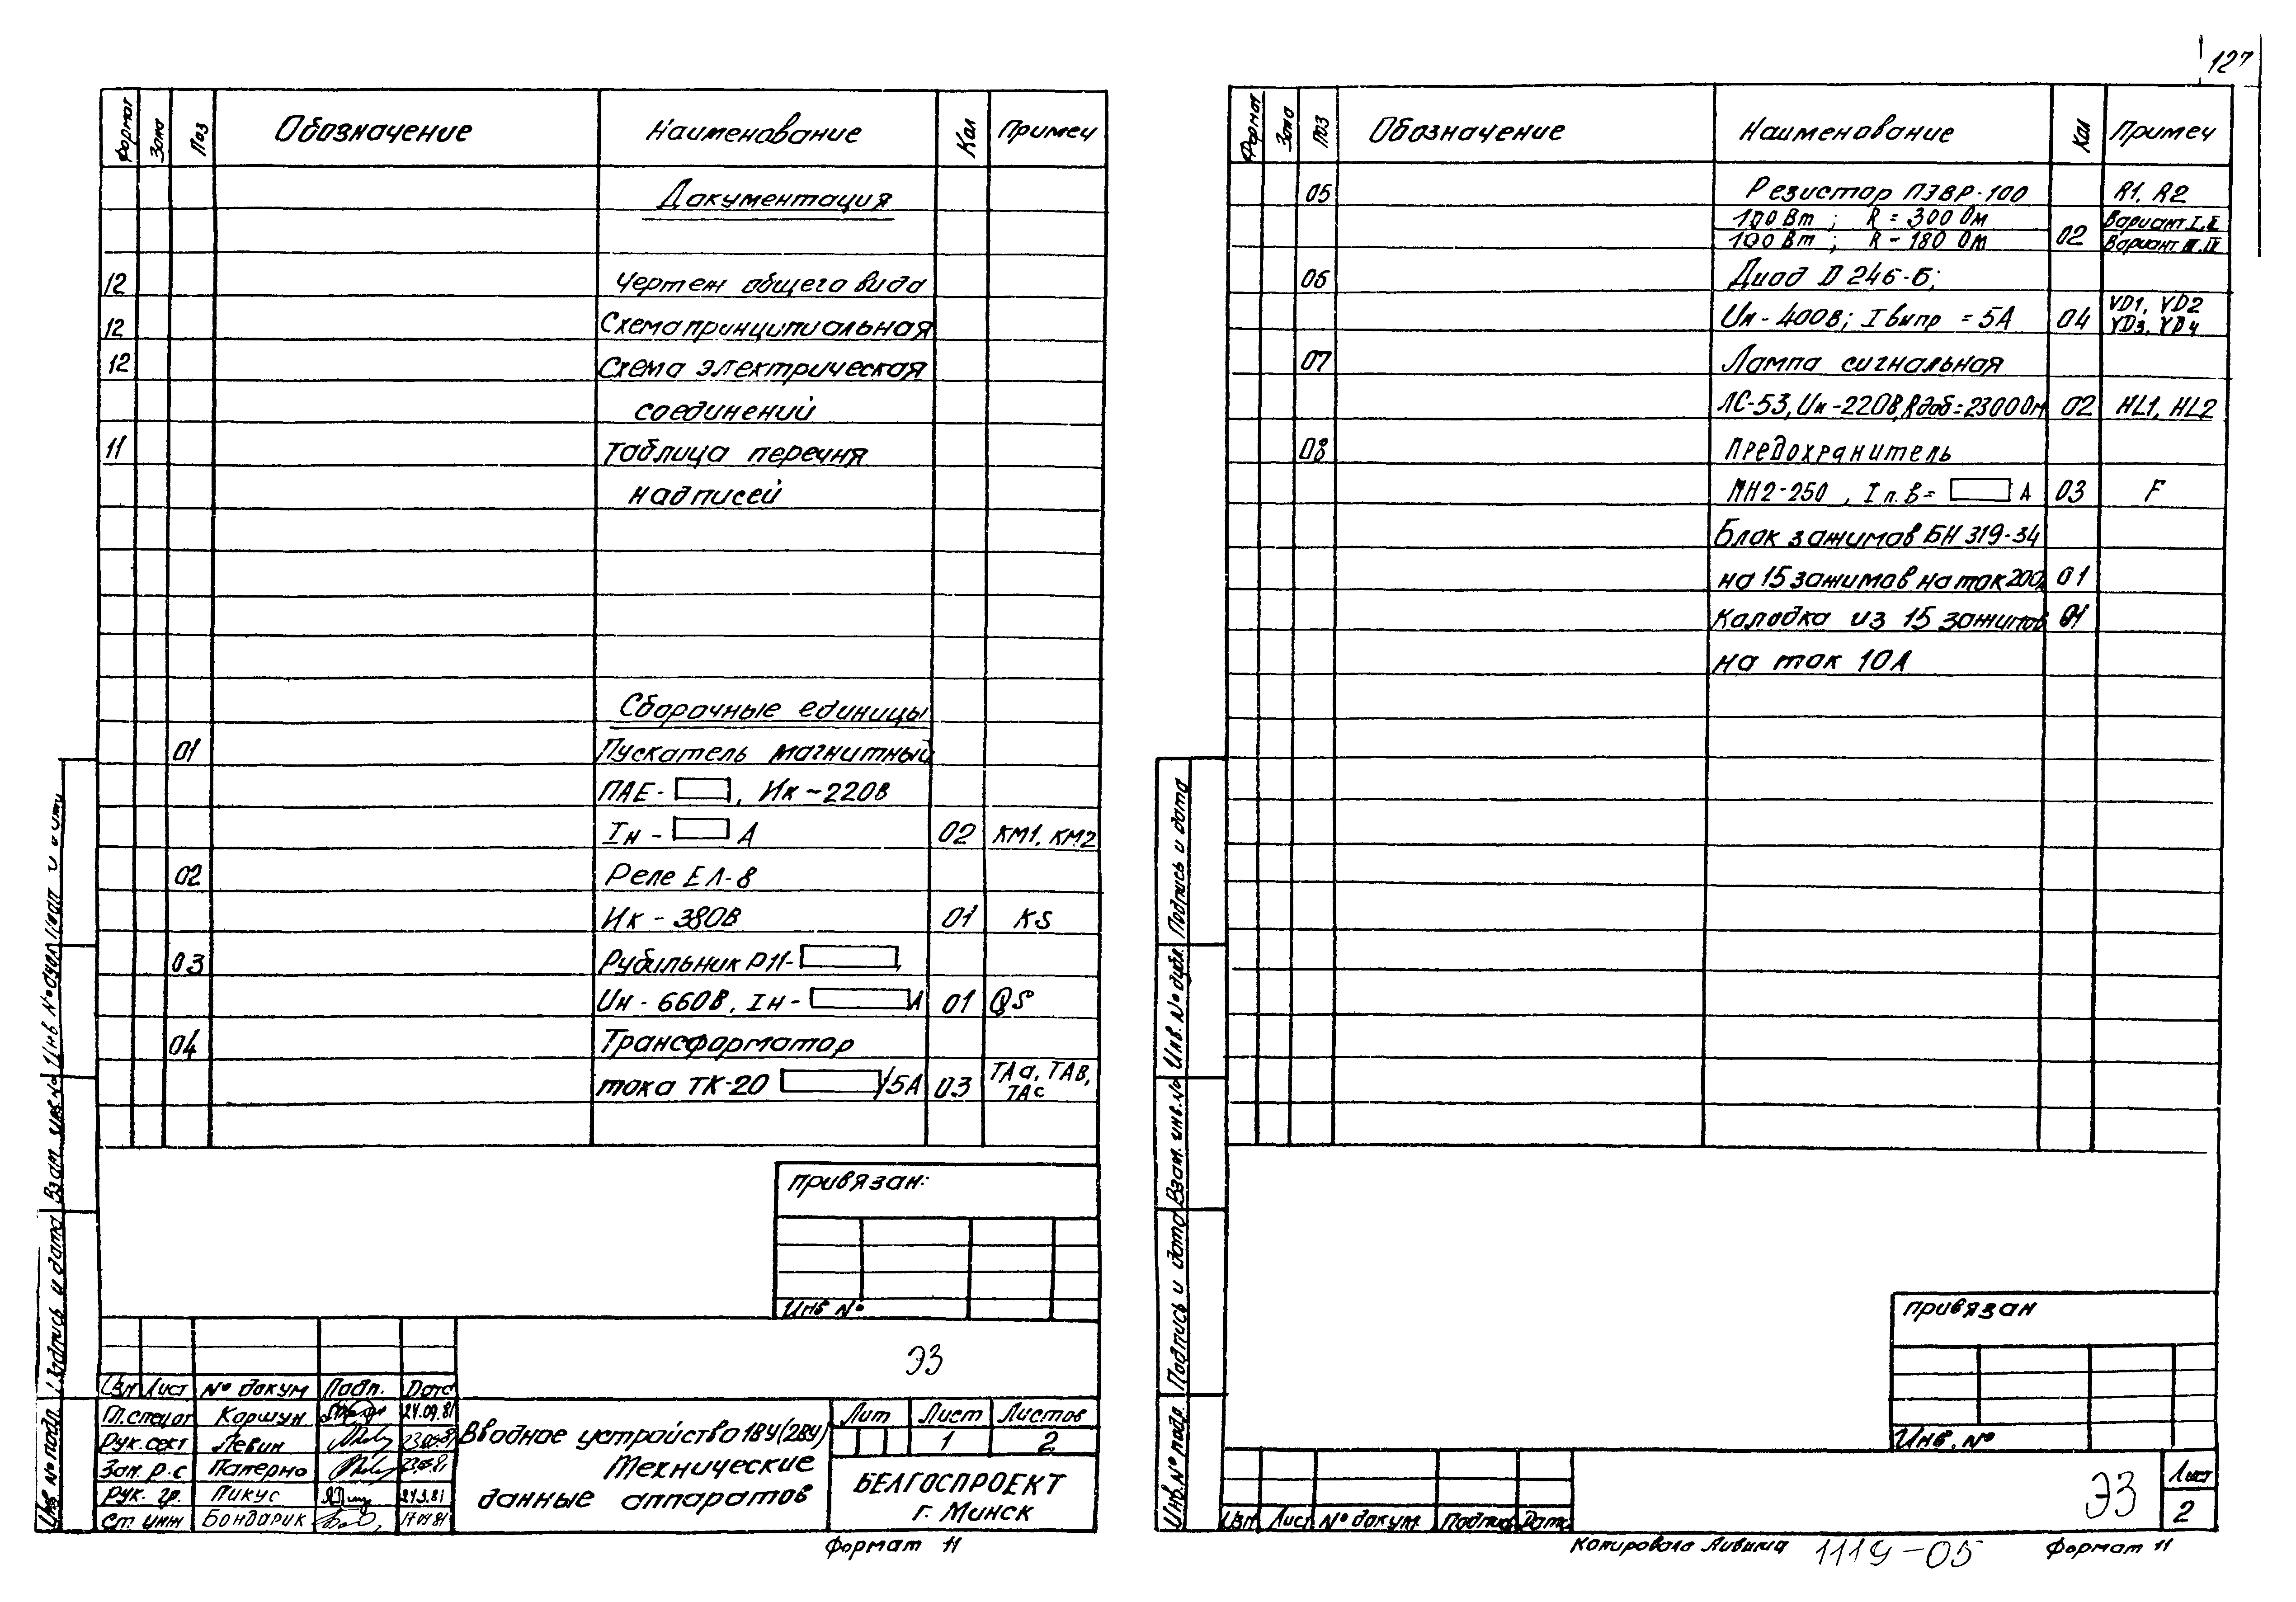 127
Формат Зона Поз Обозначение Наименование Кол Примеч
Документация
12 Чертеж общего вида
12 Схема принципиальная
12 Схема электрическая
соединений
11 Таблица перечня
надписей
Сборочные единицы
01 Пускатель магнитный
ПАЕ- , Ик ~220В
Iн - А 02 КМ1, КМ2
02 Реле ЕЛ-8
Ик - 380В 01 KS
03 Рубильник Р11-
Uн - 660В, Iн - А 01 QS
04 Трансформатор
тока ТК-20 /5А 03 ТАа, ТАв,
ТАс
привязан:
Инв №
ЭЗ
Изм Лист № докум Подп. Дата
Гл.спецот Коршун 24.09.81
Рук.сект Левин
Зам. р.с Патерно
Рук. гр. Пикус
Ст. инж Бондарик
Вводное устройство 1ВУ(2ВУ)
Технические
данные аппаратов
Лит Лист Листов
1 2
БЕЛГОСПРОЕКТ
г. Минск
Формат 11
Инв. № подл. Подпись и дата Взам инв.№ Инв № дубл
Формат Зона Поз Обозначение Наименование Кол Примеч
05 Резистор ПЭВР-100 R1, R2
100 Вт ; R = 300 Ом Вариант I, II
100 Вт ; R - 180 Ом 02 Вариант III, IV
06 Диод Д 246-Б;
Uн - 400в; I выпр = 5А 04 VD1, VD2
VD3, VD4
07 Лампа сигнальная
ЛС-53, Uн-220В, Rдоб=2300Ом 02 HL1, HL2
08 Предохранитель
ПН2-250 , I п.в= А 03 F
Блок зажимов БН 319-34
на 15 зажимов на ток 200А 01
Колодка из 15 зажимов 01
на ток 10А
привязан
Инв. №
Изм Лист № докум. Подпись Дата
ЭЗ
Лист
2
Инв.№ подл. Подпись и дата Взам. инв.№ Инв. № дубл. Подпись и дата
Копировала 1119-05 Формат 11